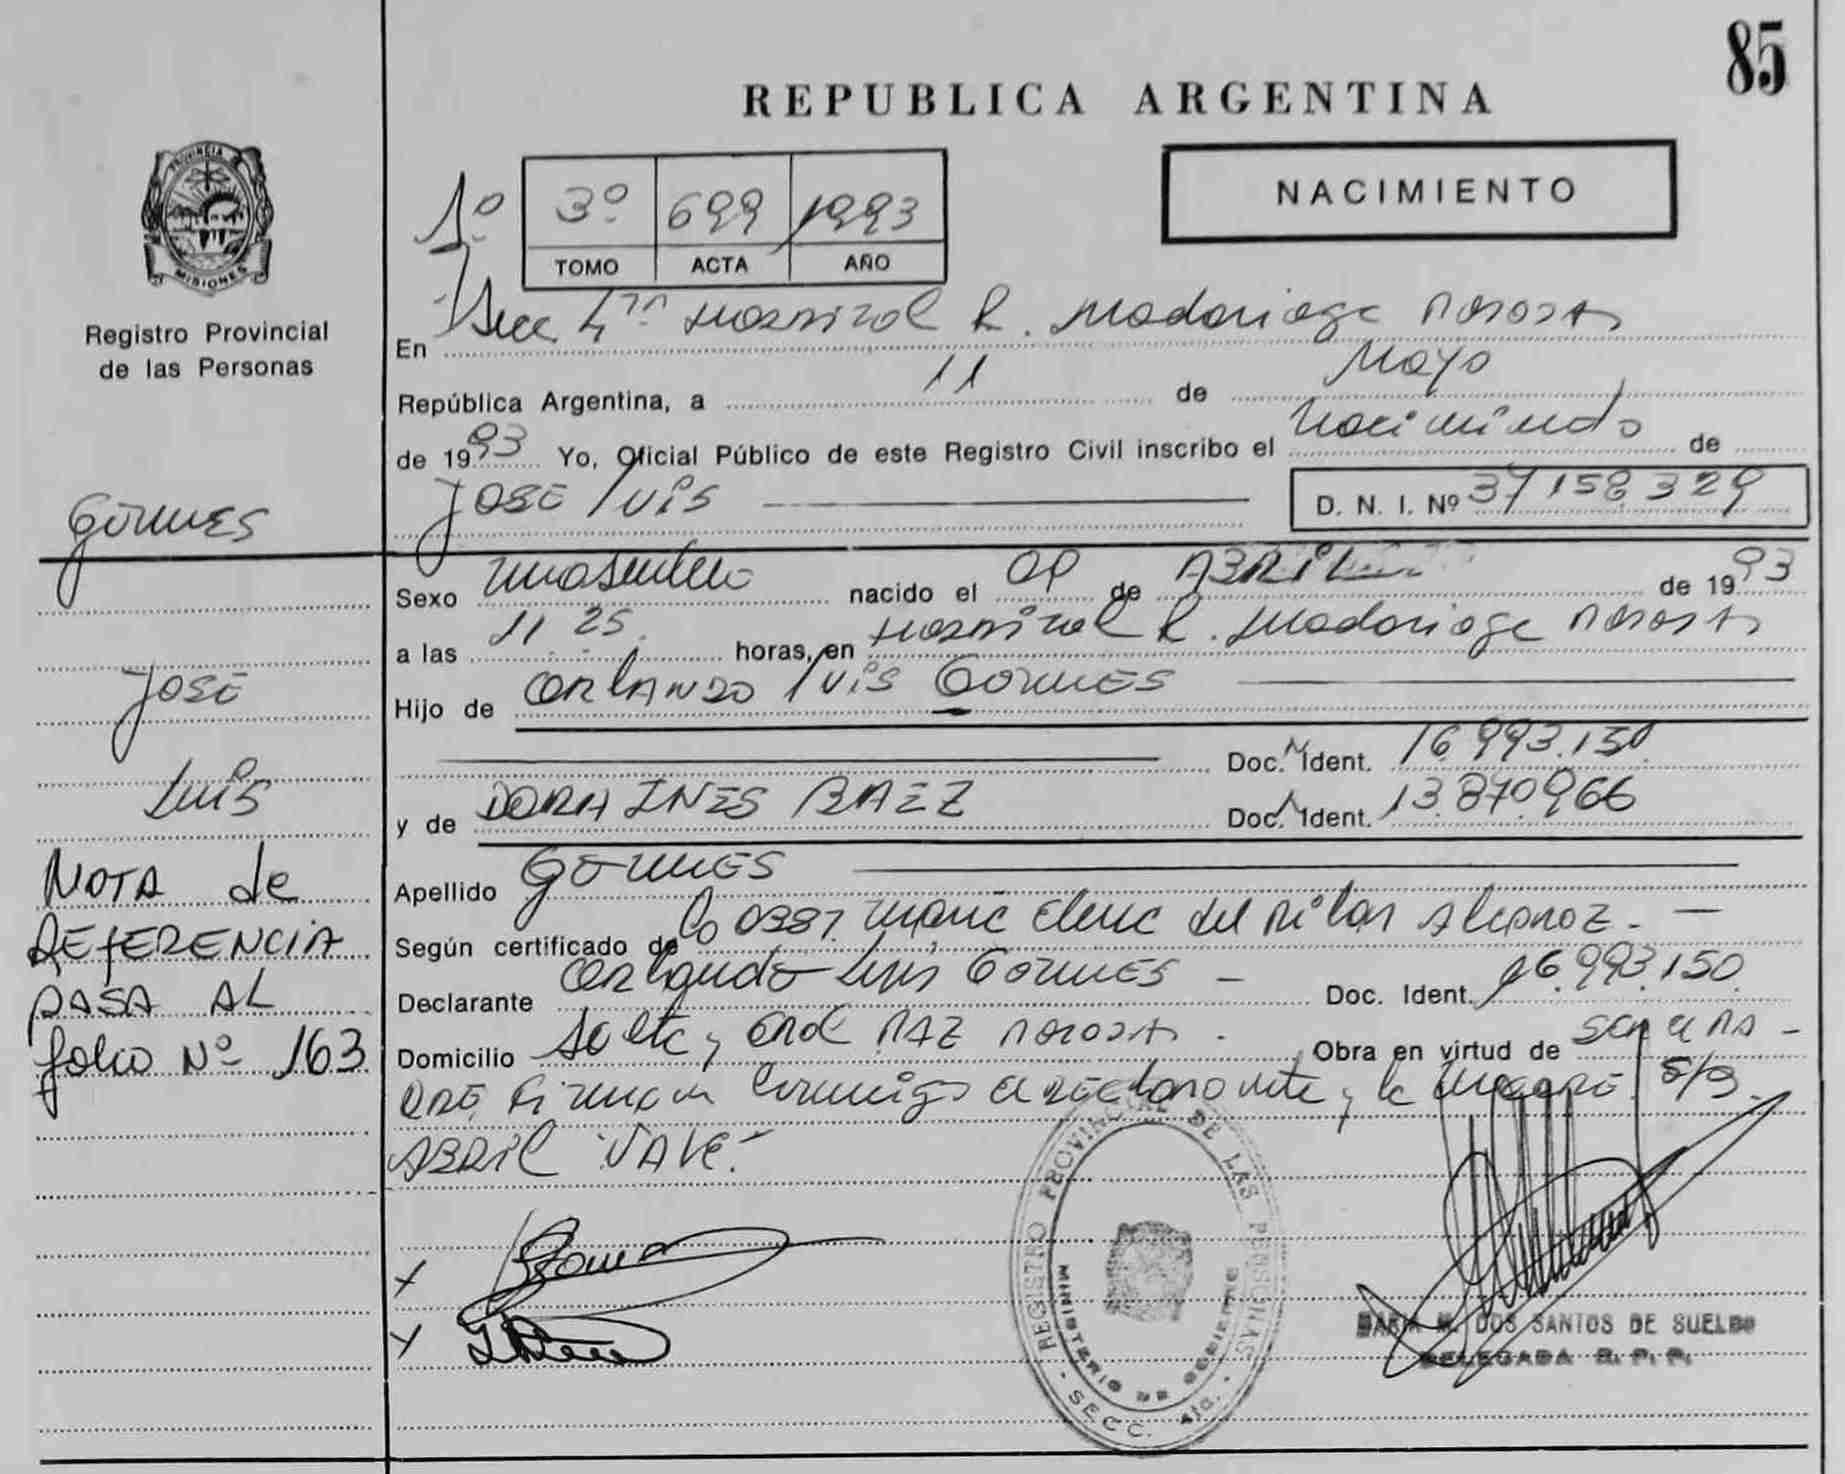 85
REPUBLICA ARGENTINA
NACIMIENTO
1º 3º 699 1993
TOMO ACTA AÑO
PROVINCIA DE
MISIONES
Registro Provincial
de las Personas
En Secc 4ta Hospital R. Madariaga Posadas
República Argentina, a 11 de Mayo
de 1993 Yo, Oficial Público de este Registro Civil inscribo el Nacimiento de
JOSE LUIS D. N. I. Nº 37158329
GOMES
JOSE
LUIS
Sexo masculino nacido el 09 de ABRIL de 1993
a las 11 25 horas, en Hospital R. Madariaga Posadas
Hijo de ORLANDO LUIS GOMES
Doc. Ident. 16.993.150
y de DORA INES BAEZ Doc. Ident. 13.870.966
Apellido GOMES
Según certificado de Co 0387. Maria Elena del Pilar Alcaraz.
Declarante Orlando Luis GOMES Doc. Ident. 16.993.150
Domicilio Salta y Posadas. Obra en virtud de ser el PA-
DRE, Firman conmigo el declarante y la madre. S/R.
ABRIL VALE.-
NOTA de
REFERENCIA
PASA AL
folio Nº 163
REGISTRO PROVINCIAL DE LAS PERSONAS
MINISTERIO DE GOBIERNO
SECC. 4ta.
MARIA M. DOS SANTOS DE SUELDO
DELEGADA R. P. P.